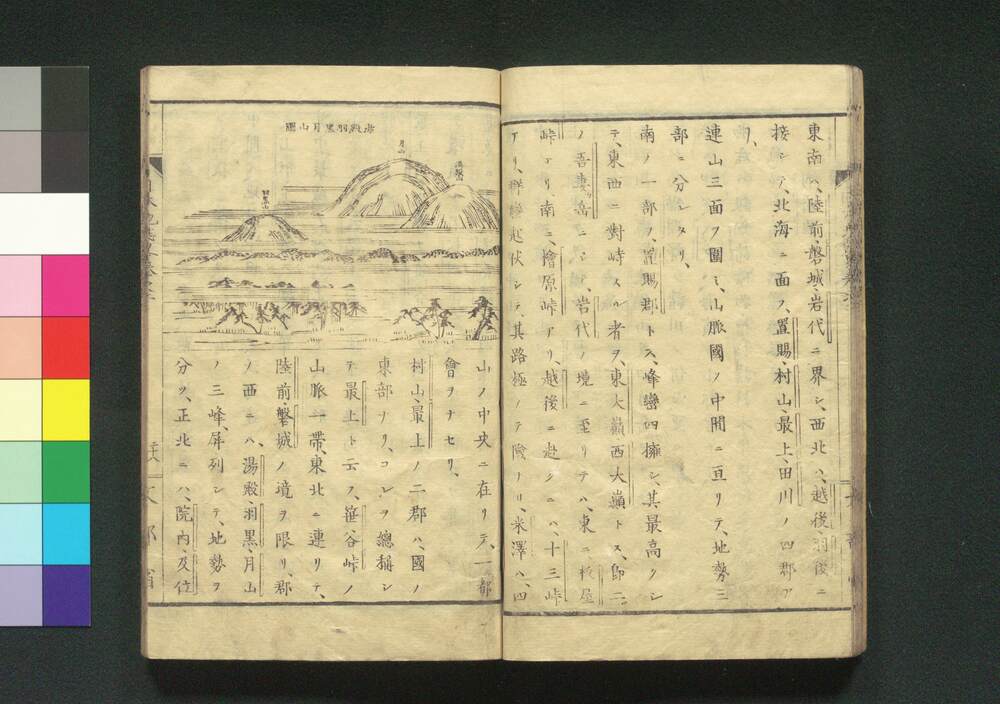 東南ハ、陸前、磐城、岩代ニ界シ、西北ハ、越後羽後ニ
接シテ、北海ニ面ス、置賜村山、最上、田川ノ四郡ア
リ、
連山三面ヲ圍ミ、山脈國ノ中間ニ亘リテ、地勢三
部ニ分レタリ、
南ノ一部ヲ、置賜郡トス、峰巒四擁シ、其最高クシ
テ、東西ニ對峙スル者ヲ、東大巓西大巓トス、即二
ノ吾妻岳ニシテ、岩代ノ境ニ至リテハ、東ニ板屋
峠アリ、南ニ、檜原峠アリ、越後ニ赴クニハ、十三峠
アリ、群巒起伏シテ、其路極メテ險ナリ、米澤ハ、四
湯殿羽黒月山圖
月山
湯殿山
羽黒山
山ノ中央ニ在リテ、一都
會ヲナセリ、
村山、最上ノ二郡ハ、國ノ
東部ナリ、コレヲ總稱シ
テ最上ト云フ、笹谷峠ノ
山脈一帶、東北ニ連リテ、
陸前、磐城ノ境ヲ限リ、郡
ノ西ニハ、湯殿、羽黒、月山
ノ三峰、屏列シテ、地勢ヲ
分ツ、正北ニハ、院内、及位
文部省